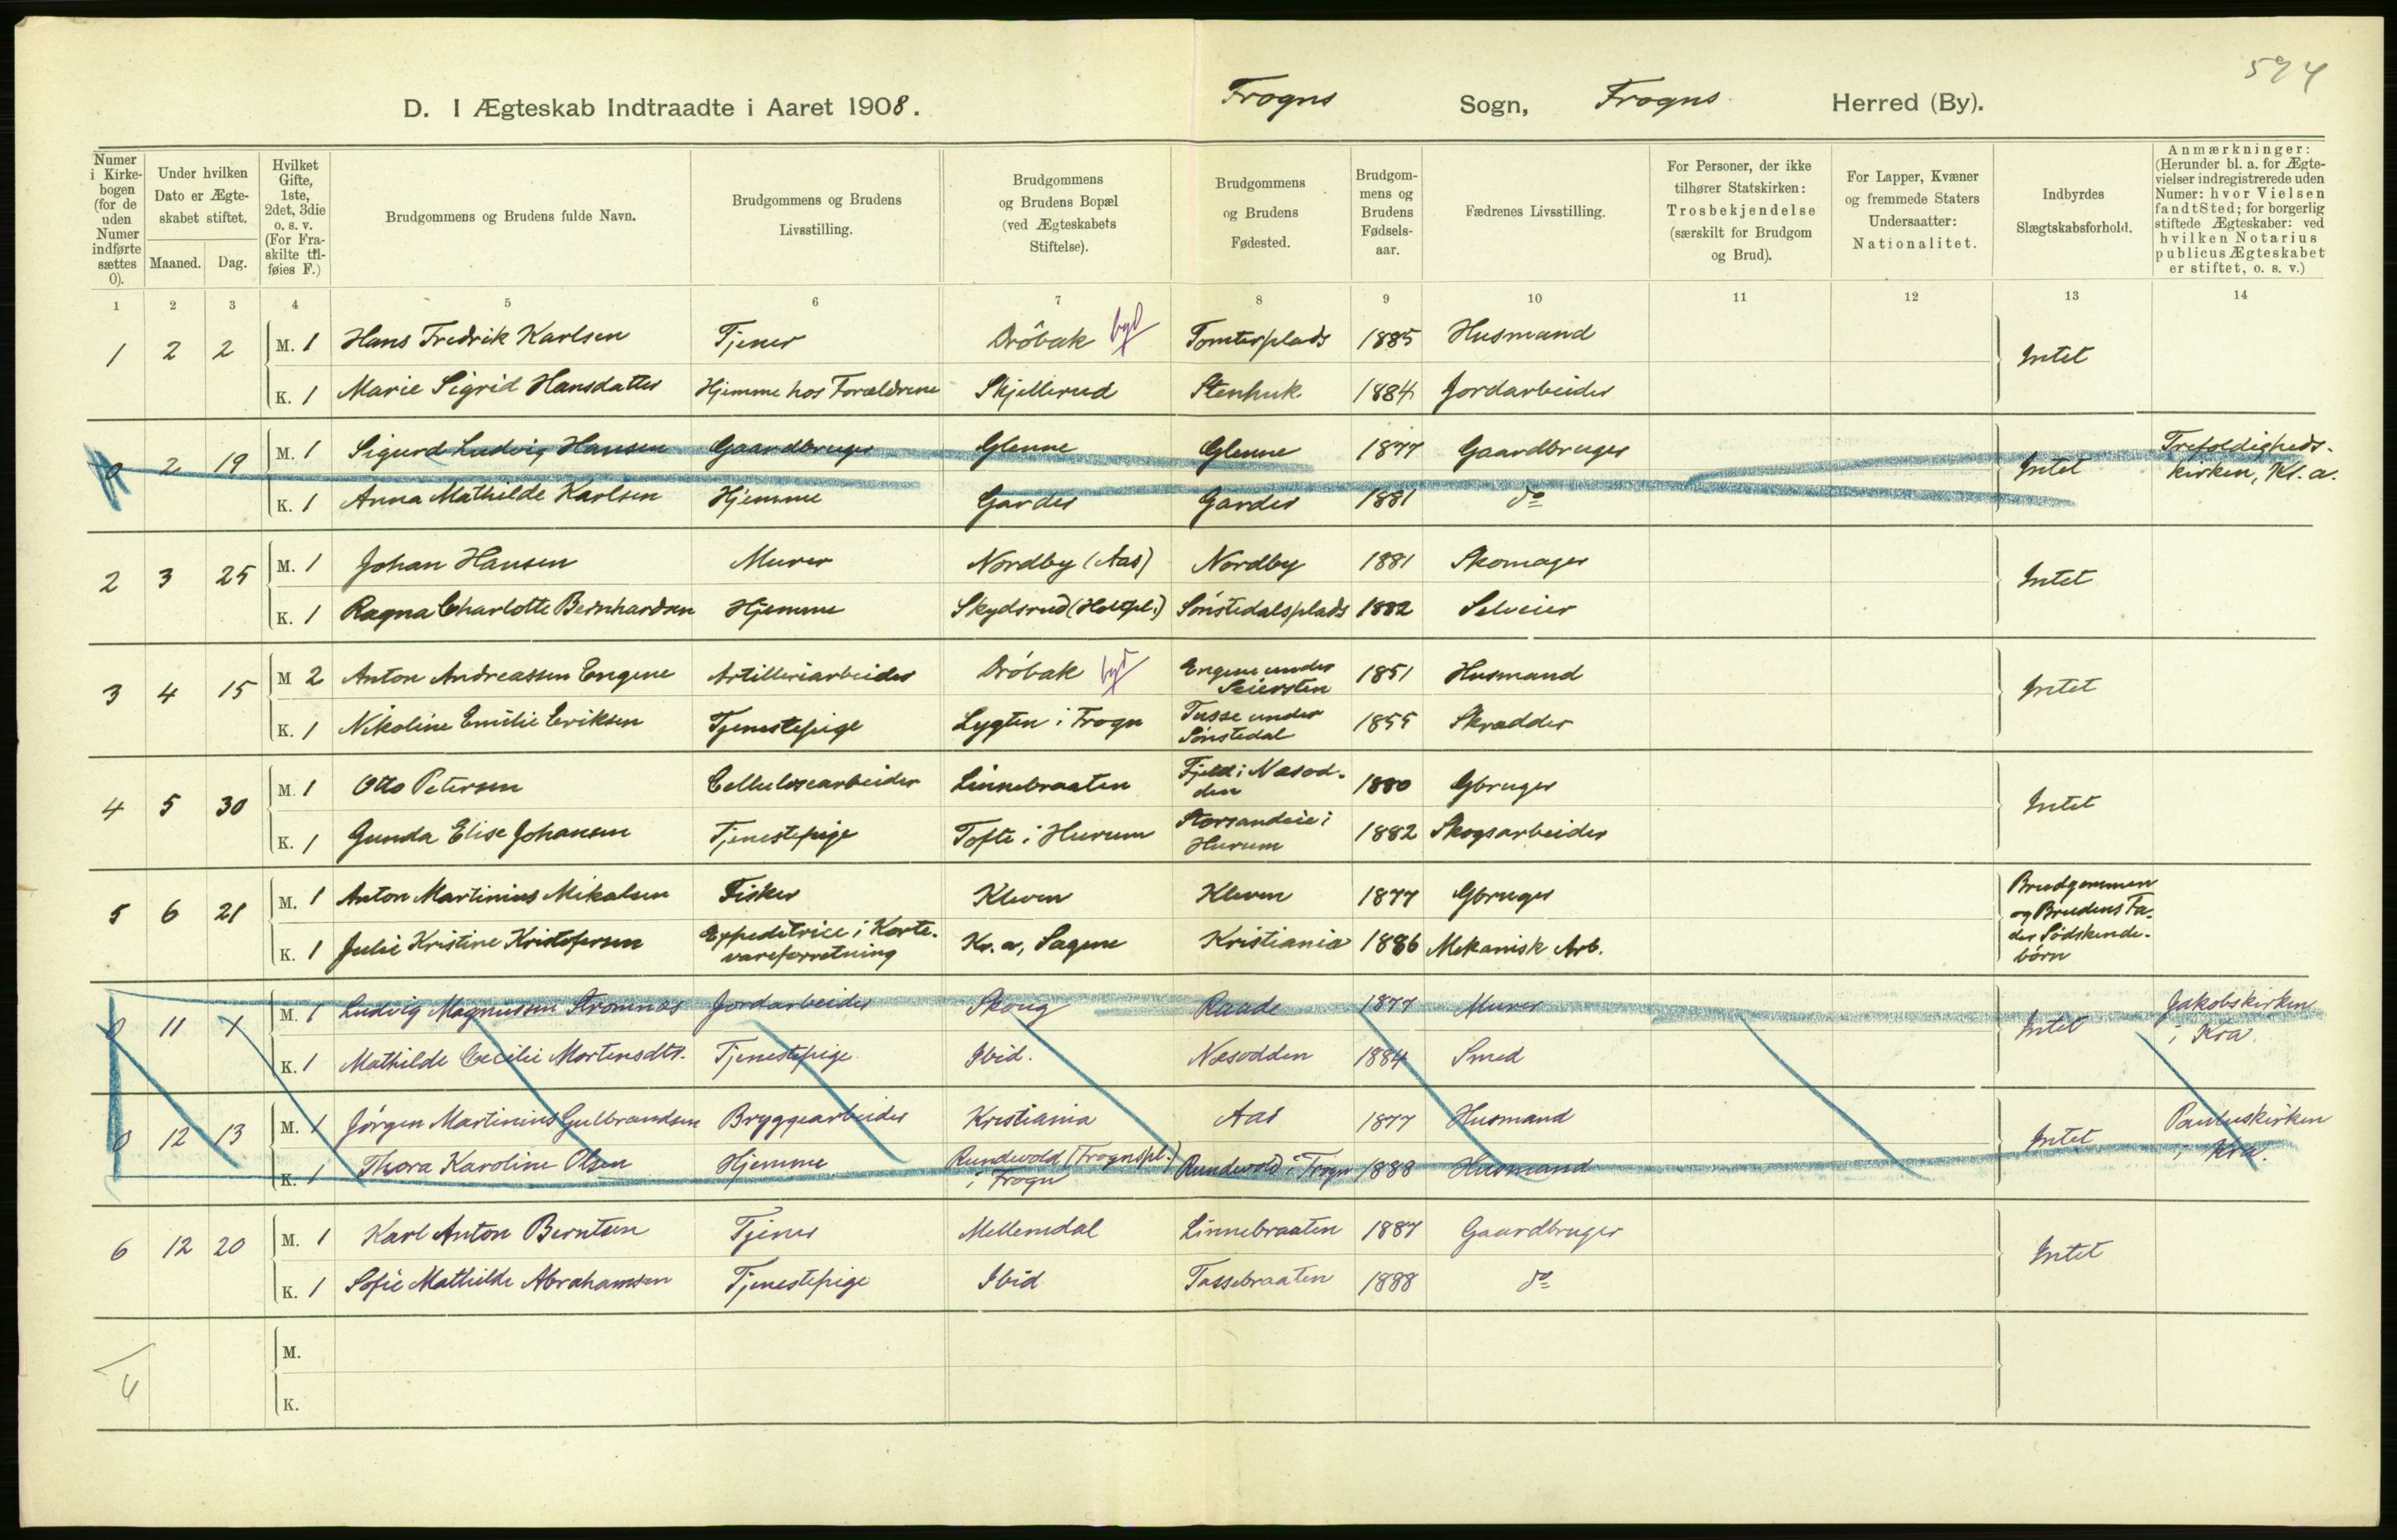 594
D. I Ægteskab Indtraadte i Aaret 1908. Frogns Sogn, Frogns Herred (By).
Numer i Kirkebogen (for de uden Numer indførte sættes 0).
Under hvilken Dato er Ægteskabet stiftet. Maaned. Dag.
Hvilket Gifte, 1ste, 2det, 3die o. s. v. (For Fraskilte tilføies F.)
Brudgommens og Brudens fulde Navn.
Brudgommens og Brudens Livsstilling.
Brudgommens og Brudens Bopæl (ved Ægteskabets Stiftelse).
Brudgommens og Brudens Fødested.
Brudgommens og Brudens Fødselsaar.
Fædrenes Livsstilling.
For Personer, der ikke tilhører Statskirken: Trosbekjendelse (særskilt for Brudgom og Brud).
For Lapper, Kvæner og fremmede Staters Undersaatter: Nationalitet.
Indbyrdes Slægtskabsforhold.
Anmærkninger: (Herunder bl. a. for Ægtevielser indregistrerede uden Numer: hvor Vielsen fandt Sted; for borgerlig stiftede Ægteskaber: ved hvilken Notarius publicus Ægteskabet er stiftet, o. s. v.)
1 2 3 4 5 6 7 8 9 10 11 12 13 14
1 2 2 M. 1 Hans Fredrik Karlsen Tjener Drøbak byd Tomterplads 1885 Husmand Intet
K. 1 Marie Sigrid Hansdatter Hjemme hos Forældrene Skjellerud Stenhuk 1884 Jordarbeider
0 2 19 M. 1 Sigurd Ludvig Hansen Gaardbruger Glenne Glenne 1877 Gaardbruger Intet Trefoldigheds-
kirken, Kr.a.
K. 1 Anna Mathilde Karlsen Hjemme Garder Garder 1881 do
2 3 25 M. 1 Johan Hansen Murer Nordby (Aas) Nordby 1881 Skomager Intet
K. 1 Ragna Charlotte Bernhardsen Hjemme Skydsrud (Holtpl.) Sønstedalsplads 1882 Selveier
3 4 15 M 2 Anton Andreassen Engene Artilleriarbeider Drøbak byd Engene under
Seiersten 1851 Husmand Intet
K. 1 Nikoline Emilie Eriksen Tjenestepige Lygten i Frogn Tusse under
Sønstedal 1855 Skrædder
4 5 30 M. 1 Otto Petersen Cellulosearbeider Linnebraaten Fjeld i Næsod-
den 1880 Gbruger Intet
K. 1 Gunda Elise Johansen Tjenestepige Tofte i Hurum Storsandeie i
Hurum 1882 Skogsarbeider
5 6 21 M. 1 Anton Martinius Mikalsen Fisker Kleven Kleven 1877 Gbruger Brudgommen
og Brudens Fa-
der Sødskende-
børn
K. 1 Julie Kristine Kristofersen Expeditrice i Korte-
vareforretning Kr.a, Sagene Kristiania 1886 Mekanisk Arb.
0 11 1 M. 1 Ludvig Magnussen Strømnæs Jordarbeider Skoug Raade 1877 Murer Intet Jakobskirken
i Kra.
K. 1 Mathilde Cecilie Mortensdtr. Tjenestepige Ibid. Næsodden 1884 Smed
0 12 13 M. 1 Jørgen Martinius Gulbrandsen Bryggearbeider Kristiania Aas 1877 Husmand Intet Pauluskirken
i Kra.
K. 1 Thora Karoline Olsen Hjemme Rundvold (Frognspl.)
i Frogn Rundvold i Frogn 1888 Husmand
6 12 20 M. 1 Karl Anton Berntsen Tjener Mellemdal Linnebraaten 1887 Gaardbruger Intet
K. 1 Sofie Mathilde Abrahamsen Tjenestepige Ibid Tassebraaten 1888 do
M.
K.